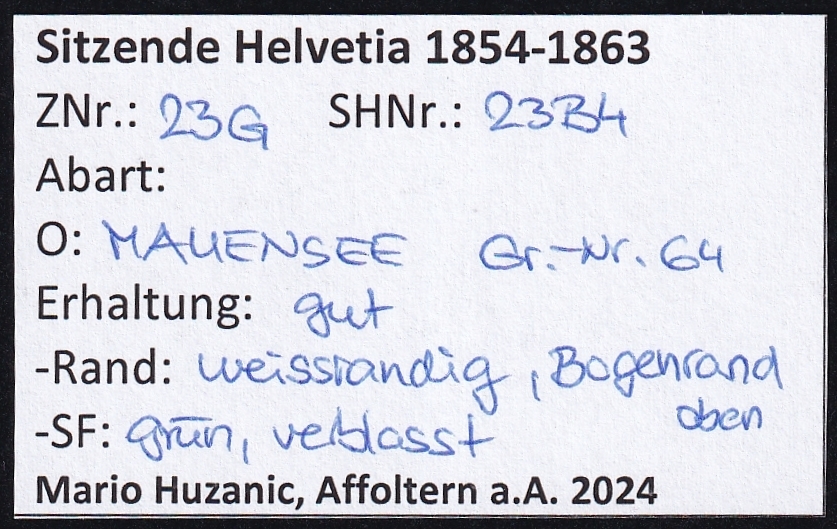 Sitzende Helvetia 1854-1863
ZNr.: 23G SHNr.: 23B4
Abart:
O: MAUENSEE Gr.-Nr. 64
Erhaltung: gut
-Rand: weissrandig, Bogenrand oben
-SF: grün, verblasst
Mario Huzanic, Affoltern a.A. 2024